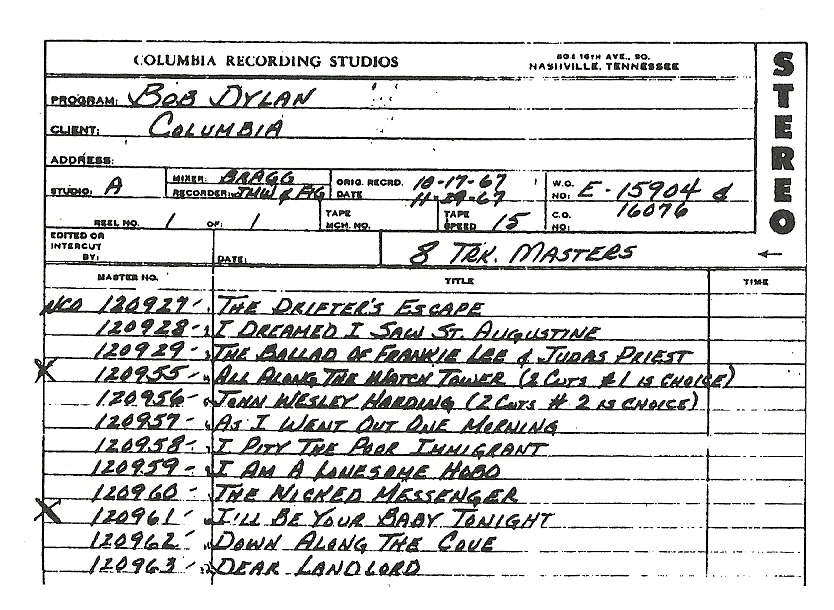 COLUMBIA RECORDING STUDIOS
804 16TH AVE., SO.
NASHVILLE, TENNESSEE
STEREO
PROGRAM: BOB DYLAN
CLIENT: COLUMBIA
ADDRESS:
STUDIO: A
MIXER: BRAGG
RECORDER:
ORIG. RECRD. DATE 10-17-67
11-29-67
W.O. NO: E-15904 &
16076
C.O. NO:
REEL NO. 1 OF: 1
TAPE MCH. NO.
TAPE SPEED 15
EDITED OR INTERCUT BY:
DATE:
8 TRK. MASTERS ←
MASTER NO. TITLE TIME
NCO 120927- THE DRIFTER'S ESCAPE
120928- I DREAMED I SAW ST. AUGUSTINE
120929- THE BALLAD OF FRANKIE LEE & JUDAS PRIEST
X 120955- ALL ALONG THE WATCH TOWER (2 CUTS #1 IS CHOICE)
120956- JOHN WESLEY HARDING (2 CUTS #2 IS CHOICE)
120957- AS I WENT OUT ONE MORNING
120958- I PITY THE POOR IMMIGRANT
120959- I AM A LONESOME HOBO
120960- THE WICKED MESSENGER
X 120961- I'LL BE YOUR BABY TONIGHT
120962- DOWN ALONG THE COVE
120963- DEAR LANDLORD